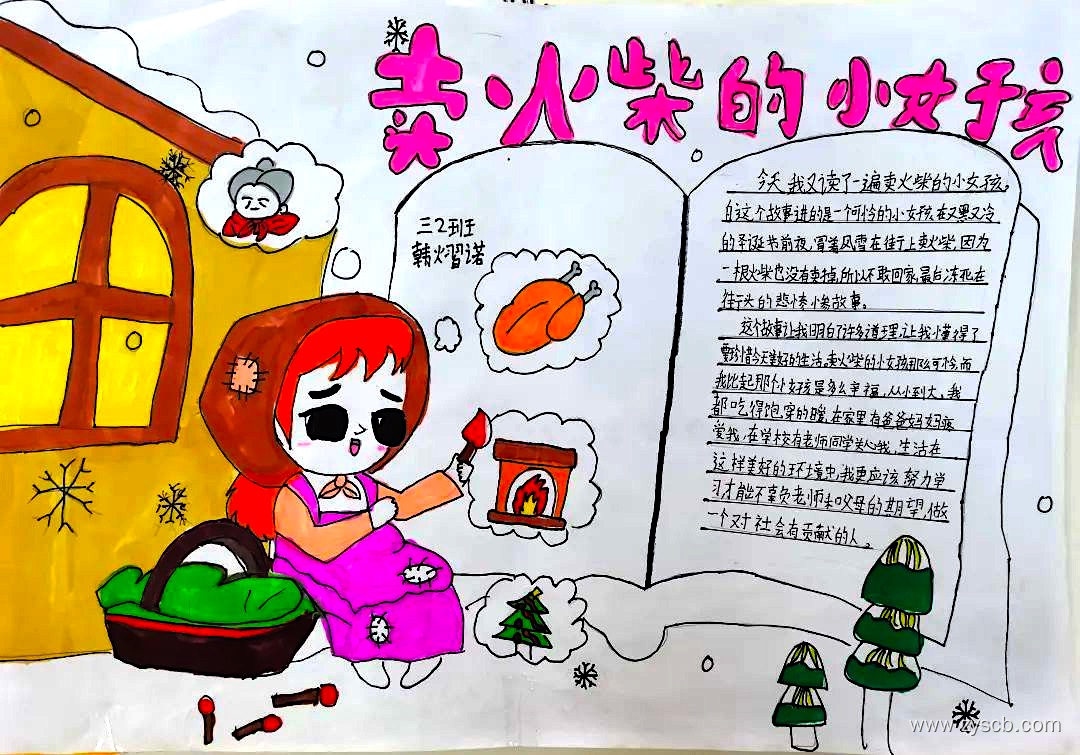 卖火柴的小女孩
三2班
韩熠诺
今天,我又读了一遍卖火柴的小女孩。
这个故事讲的是一个可怜的小女孩,在又黑又冷
的圣诞节前夜,冒着风雪在街上卖火柴,因为
一根火柴也没有卖掉,所以不敢回家,最后冻死在
街头的悲惨故事。
这个故事让我明白了许多道理,让我懂得了
要珍惜今天美好的生活,卖火柴的小女孩那么可怜,而
我比起那个小女孩是多么幸福,从小到大,我
都吃得饱,穿的暖,在家里有爸爸妈妈疼
爱我,在学校有老师同学关心我,生活在
这样美好的环境中,我更应该努力学
习才能不辜负老师和父母的期望,做
一个对社会有贡献的人。
www.zyscb.com